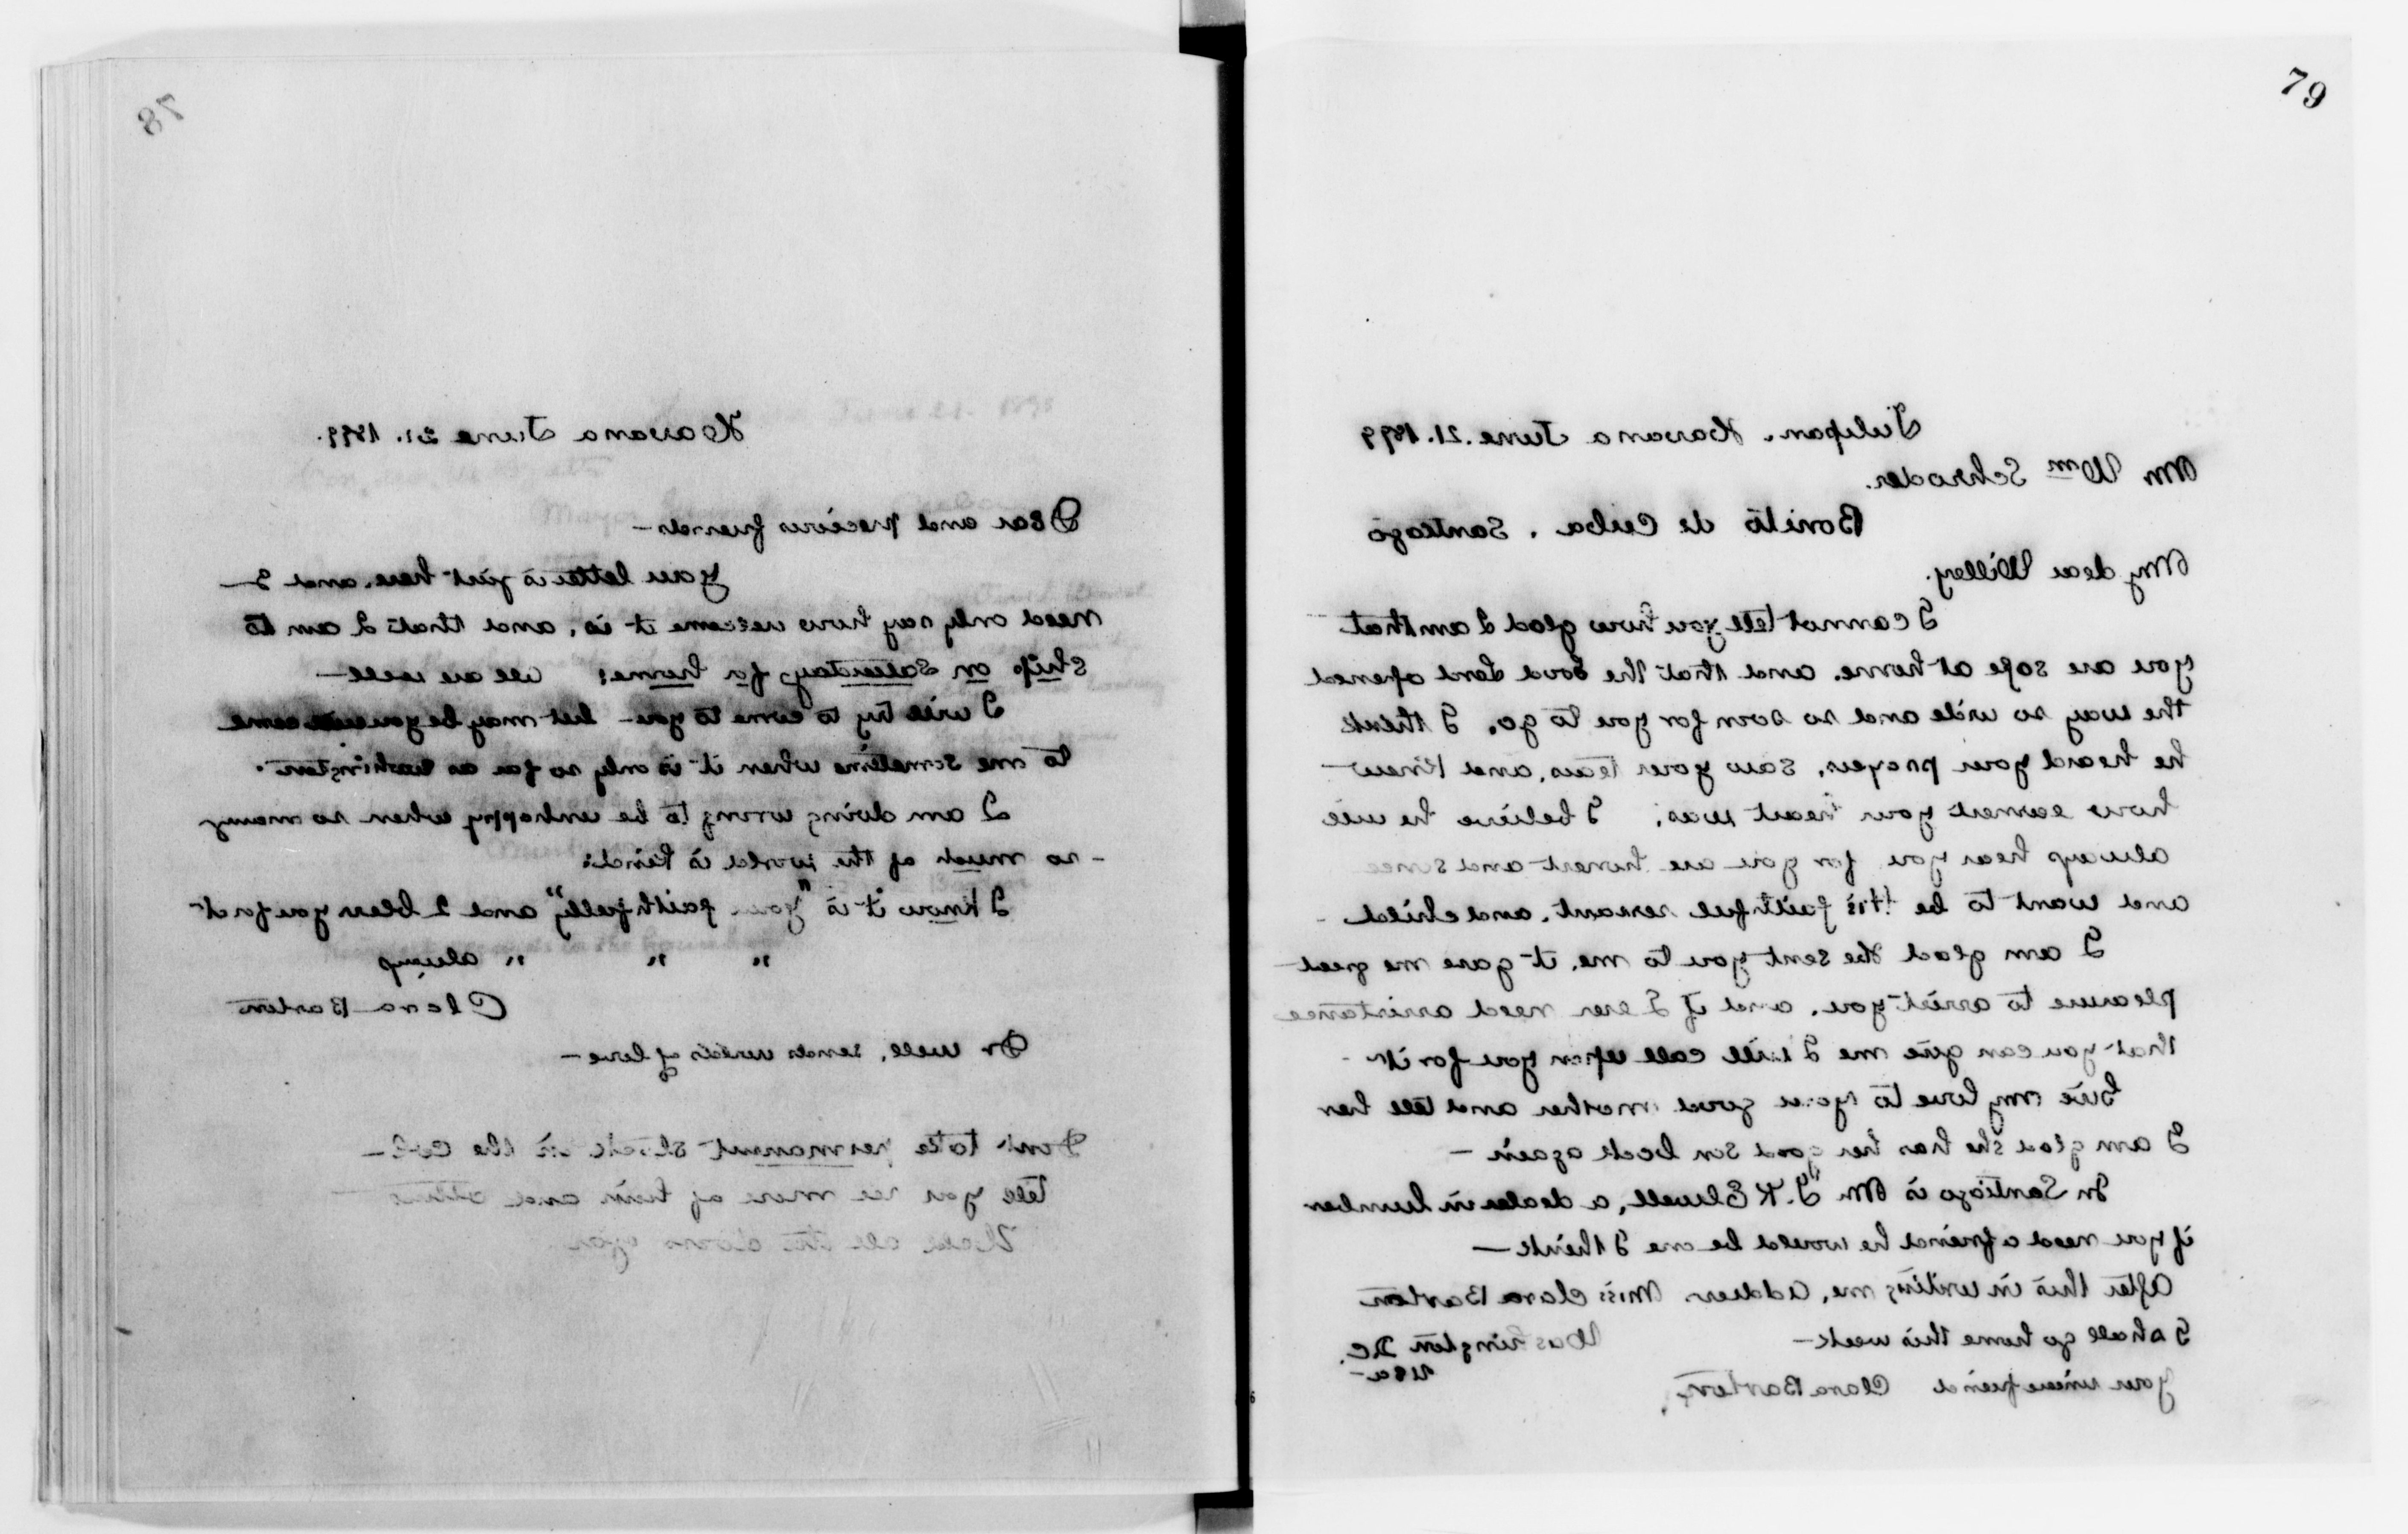 78
Havana June 21. 1899.
Dear and precious friends—
Your letter is just here. and I—
need only say how welcome it is, and that I am to
ship on Saturday for home; all are well—
I will try to come to you— but may be you will come
to me sometime when it is only so far as Washington.
I am doing wrong to be unhappy when so many
- so much of the world is kind:
I know it is "your faithfully," and I bless you for it
" " " always
Clara Barton
Dr well, sends worlds of love—
Dont take permanent stock in the
tell you see more of him and
all the doors
79
Tulipan. Havana June. 21. 1899
Mr Wm Schroder.
Bonito de Cuba. Santiago
My dear Willey.
I cannot tell you how glad I am that
you are safe at home. and that the Good Lord opened
the way so wide and so soon for you to go. I think
he heard your prayers, saw your tears, and knew—
how earnest your heart was; I believe he will
always hear you for you are honest and since
and want to be His faithful servant. and child—
I am glad He sent you to me. it gave me great—
pleasure to assist you. and if I ever need assistance
that you can give me I will call upon you for it—
Give my love to your good mother and tell her
I am glad she has her good son back again—
In Santiago is Mr J. K Elwell, a dealer in lumber
if you need a friend he would be one I think—
After this in writing me, Address Miss Clara Barton
I shall go home this week— Washington D.C.
USa—
Your friend Clara Barton,